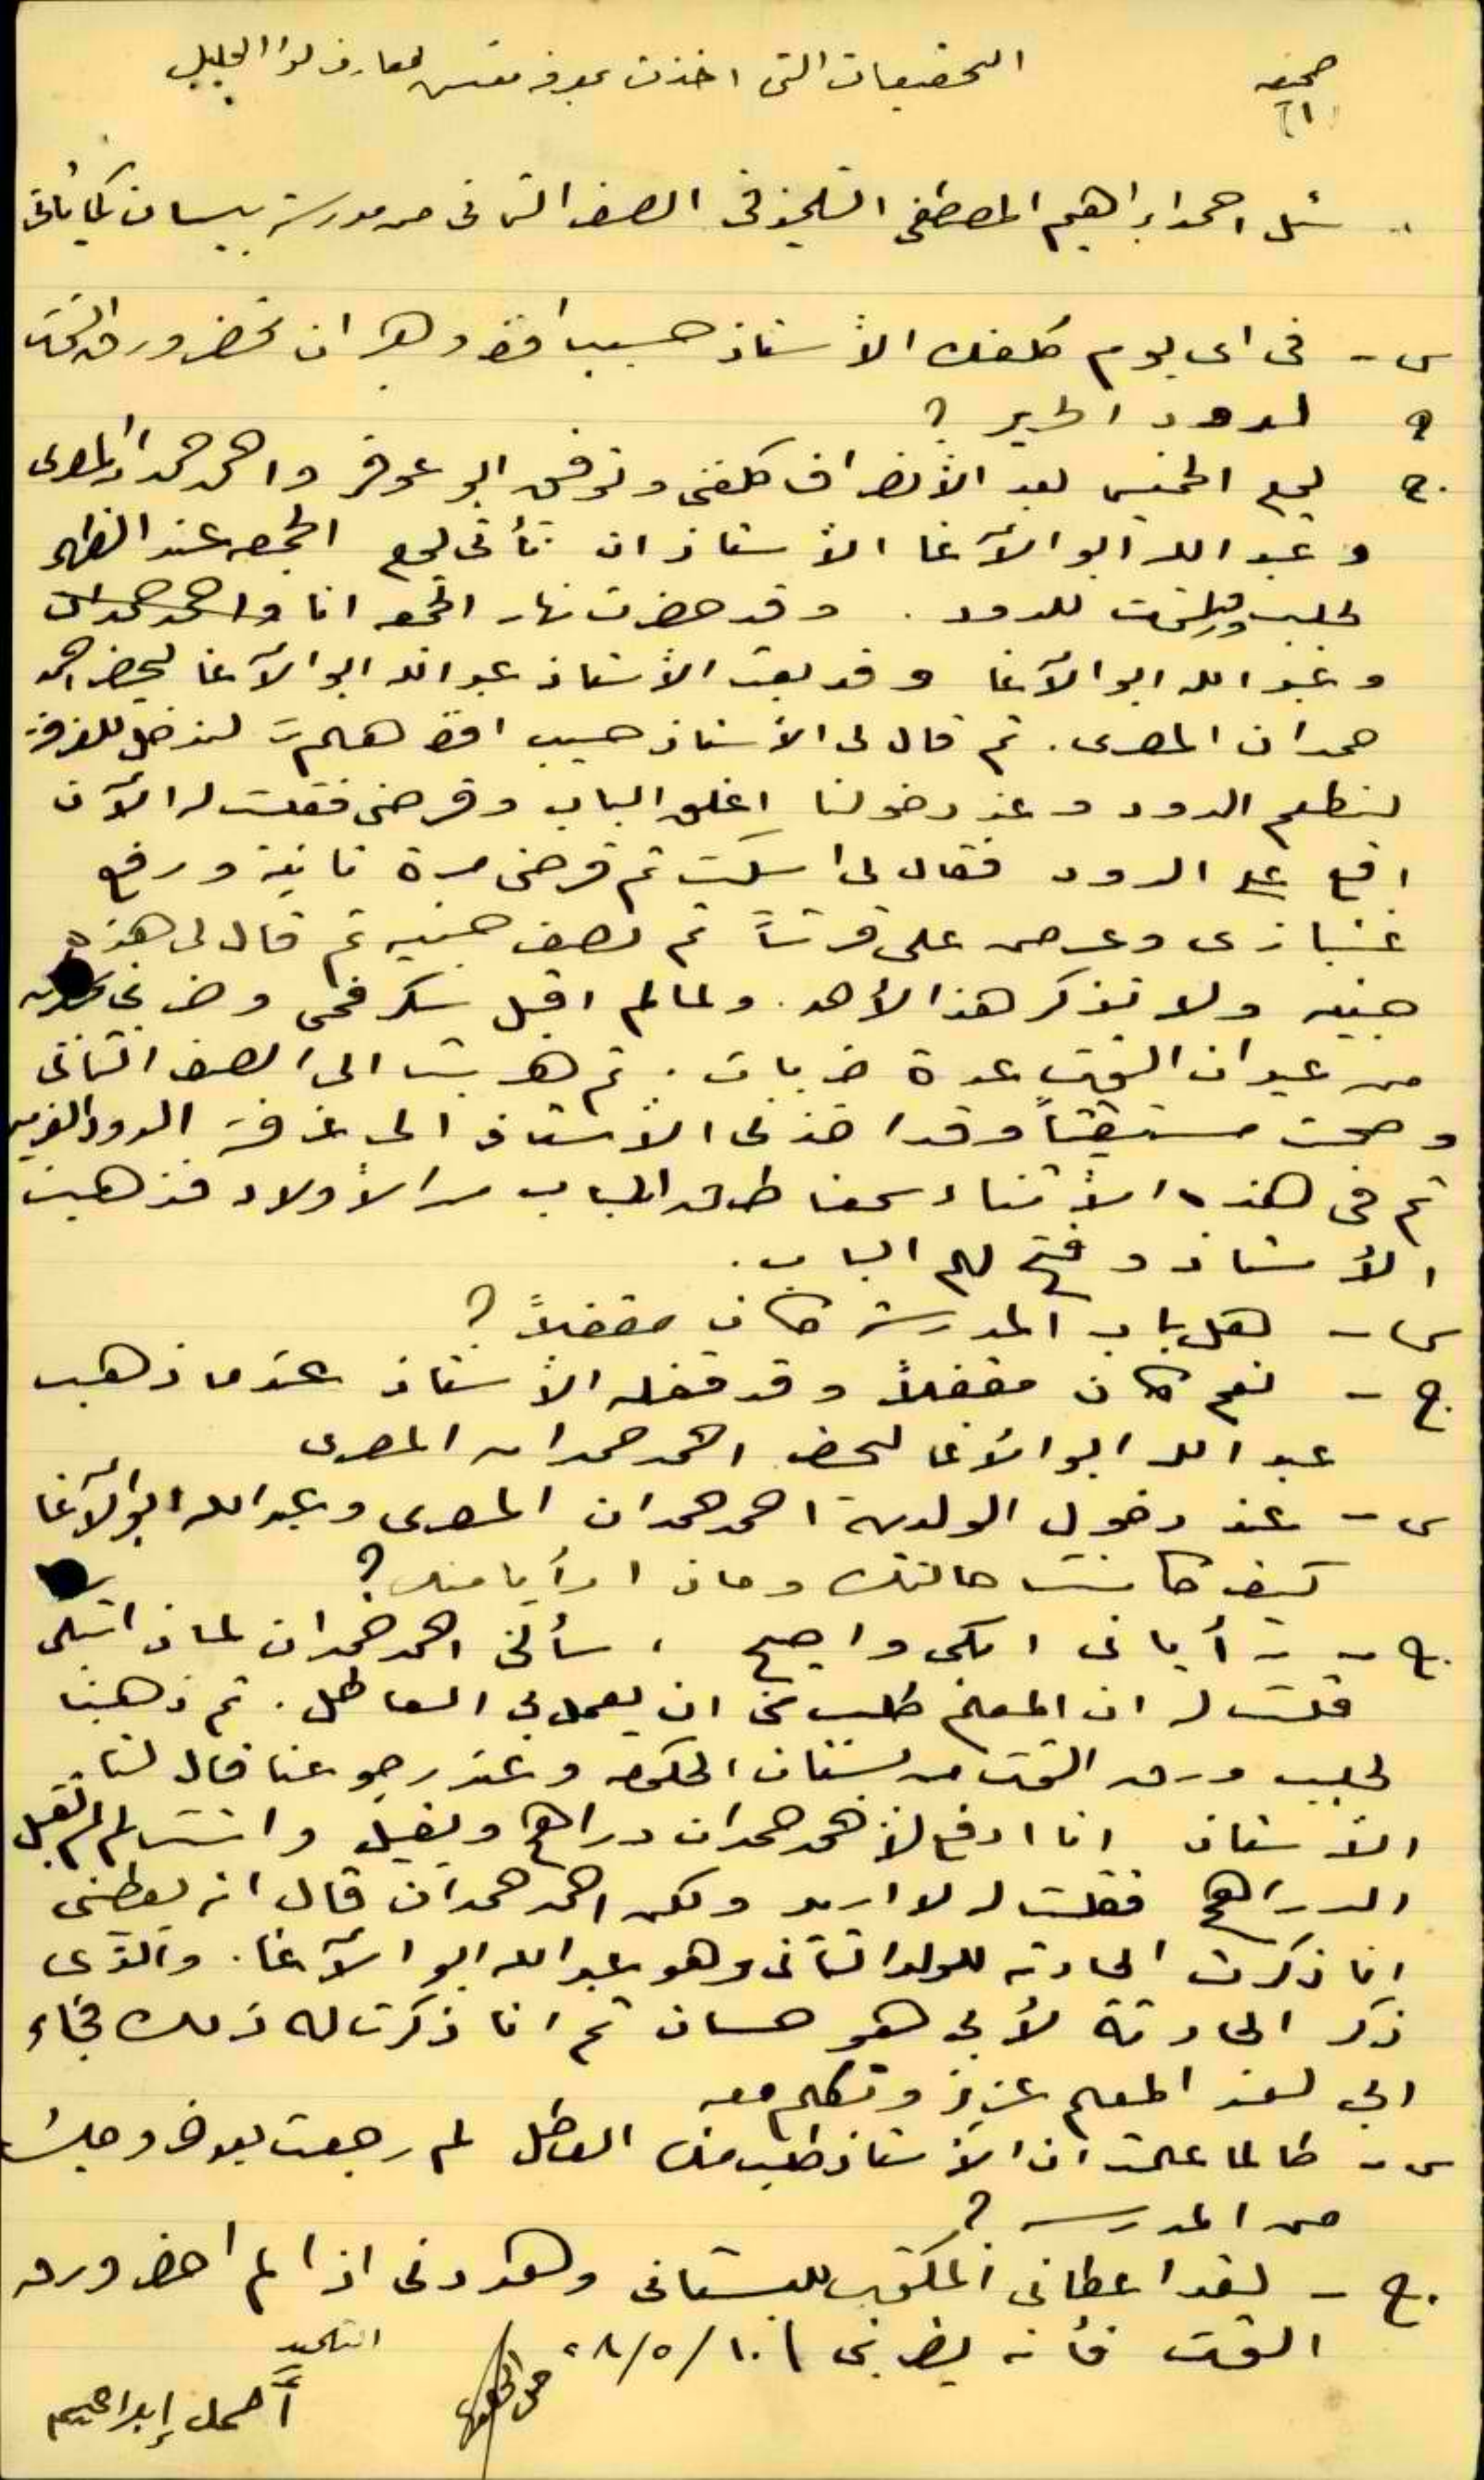 صحيفة
(١)
التحقيقات التي اخذت بمعرفة مفتش معارف لواء الجليل
سئل احمد ابراهيم المصطفى التلميذ في الصف الثاني من مدرسة بيسان كما يأتي
س - في اي يوم كلفك الأستاذ حسيب افندي ان تحضر ورق التوت
لدود الحرير ؟
ج. يوم الخميس بعد الأنصراف كلفني وتوفيق ابو واحمد حمدان المصري
و عبد الله ابو الآغا الأستاذ ان نأتي يوم الجمعة عند الظهر
لجلب للدود . وقد حضرت نهار الجمعة انا واحمد حمدان
و عبد الله ابو الآغا وقد بعث الأستاذ عبد الله ابو الآغا ليحضر احمد
حمدان المصري . ثم قال لي الأستاذ حسيب افندي هلم لندخل للغرفة
لنطعم الدود وعند دخولنا اغلق الباب وقرصني فقلت له الآن
اقع على الدود فقال لي اسكت ثم قرصني مرة ثانية ورفع
غنبازي وعرض علي قرشاً ثم نصف جنيه ثم قال لي هذه
جنيه ولا تذكر هذا لأحد . ولما لم اقبل سكر فمي وضربني
من عيدان التوت عدة ضربات . ثم هربت الى الصف الثاني
وصحت مستغيثاً وقد اخذني الأستاذ الى غرفة الدود
ثم في هذه الأثناء سمعنا طرق الباب من الأولاد فذهب
الأستاذ وفتح لهم الباب .
س - هل باب المدرسة كان مقفلاً ؟
ج. - نعم كان مقفلاً وقد قفله الأستاذ عندما ذهب
عبد الله ابو الآغا ليحضر احمد حمدان المصري
س - عند دخول الولدين احمد حمدان المصري وعبد الله ابو الآغا
كيف كانت حالتك وماذا رأيا منك ؟
ج. - رأياني ابكي واصيح ، سألني احمد حمدان لماذا تبكي
قلت له ان المعلم طلب مني ان يعمل بي العاطل . ثم ذهبنا
لجلب ورق التوت من بستان الحكومة وعند رجوعنا قال لنا
الأستاذ انا ادفع لأحمد حمدان دراهم ويقبل وانت لم تقبل
الدراهم فقلت له لا اريد ولكن احمد حمدان قال انه يعطيني
انا ذكرت الحادثة للولد الثاني وهو عبد الله ابو الآغا . والذي
ذكر الحادثة لأبي هو حسان ثم انا ذكرت له ذلك فجاء
ابي لعند المعلم عزيز وتكلم معه
س - طالما علمت ان الأستاذ طلب منك العاطل لم رجعت بعود وجلست
من المدرسة ؟
ج. - لقد اعطاني المكتوب للبستاني وهددني اذا لم احضر ورق
التوت فأنه يضربني ١٠/٥/٢٨
التلميذ
أحمد إبراهيم